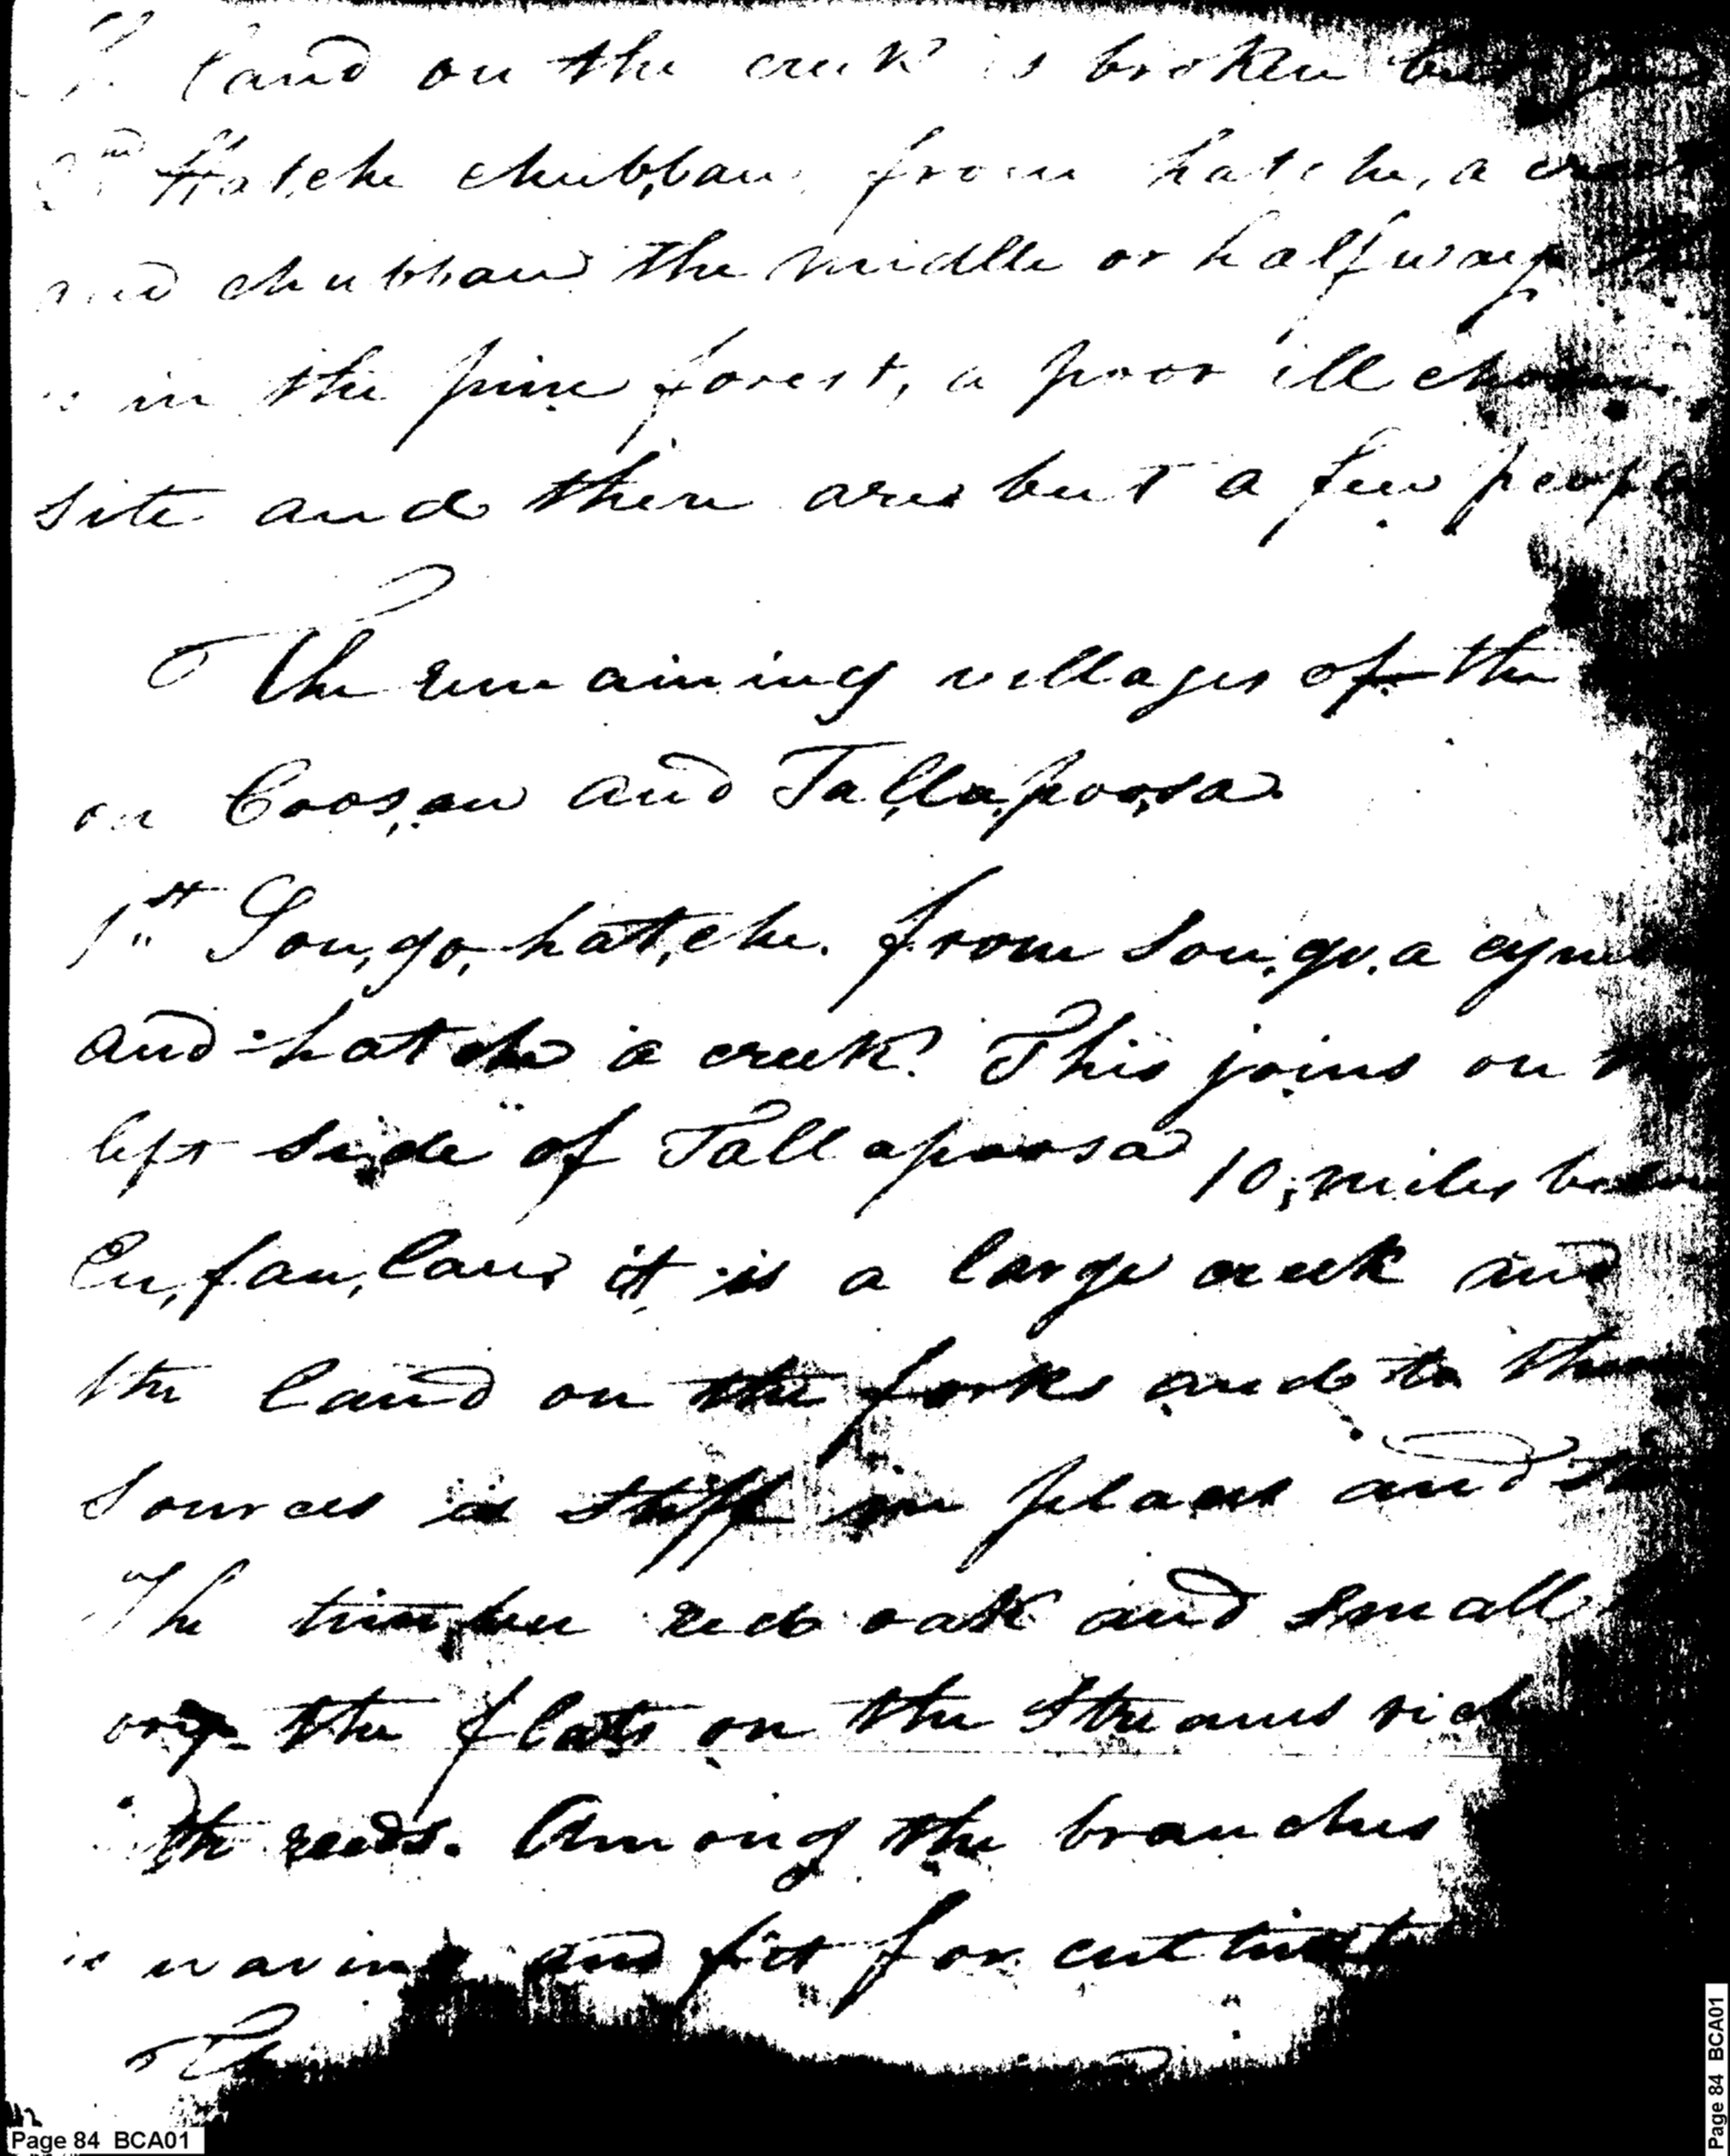 land on the creek is broken but
2nd Hatche chubbau, from hatche, a creek
and chubbau the middle or half way
is in the pine forest, a poor ill chosen
site and there are but a few people
The remaining villages of the
on Coos,au and Tal,la,poo,sa
1st Sou,go,hat,che. from sou,go, a cym
and hatche a creek. This joins on
left side of Tallapoosa 10, miles below
Eu,fau,lau, it is a large creek and
the land on the forks and to the
sources is stiff in places and
The timber red oak and small
the flats on the streams rich
reeds. Among the branches
is waving and fit for
Page 84 BCA01
Page 84 BCA01